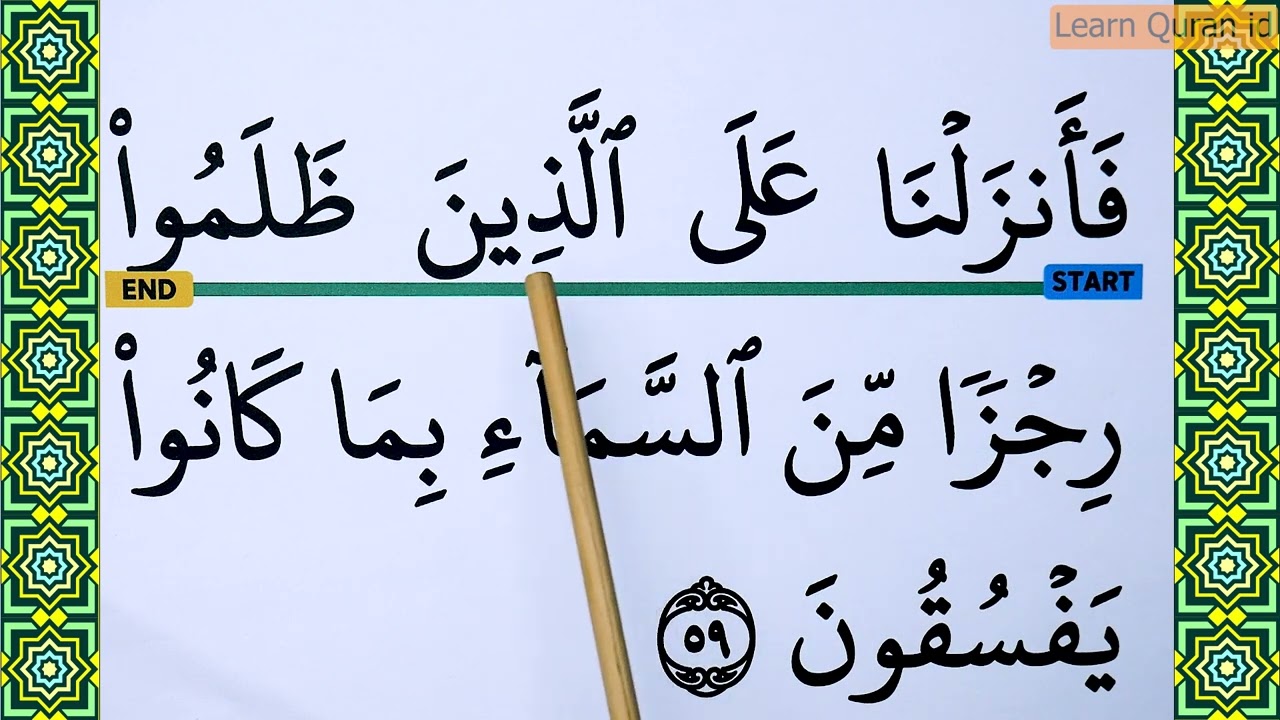 Learn Quran id
فَأَنزَلْنَا عَلَى ٱلَّذِينَ ظَلَمُوا۟
START END
رِجْزًا مِّنَ ٱلسَّمَآءِ بِمَا كَانُوا۟
يَفْسُقُونَ ٥٩